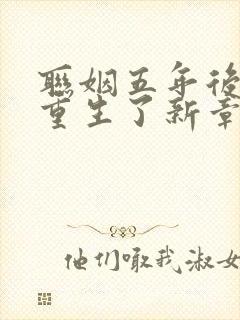 聯姻五年後
重生了新章
他们嗷我淑女